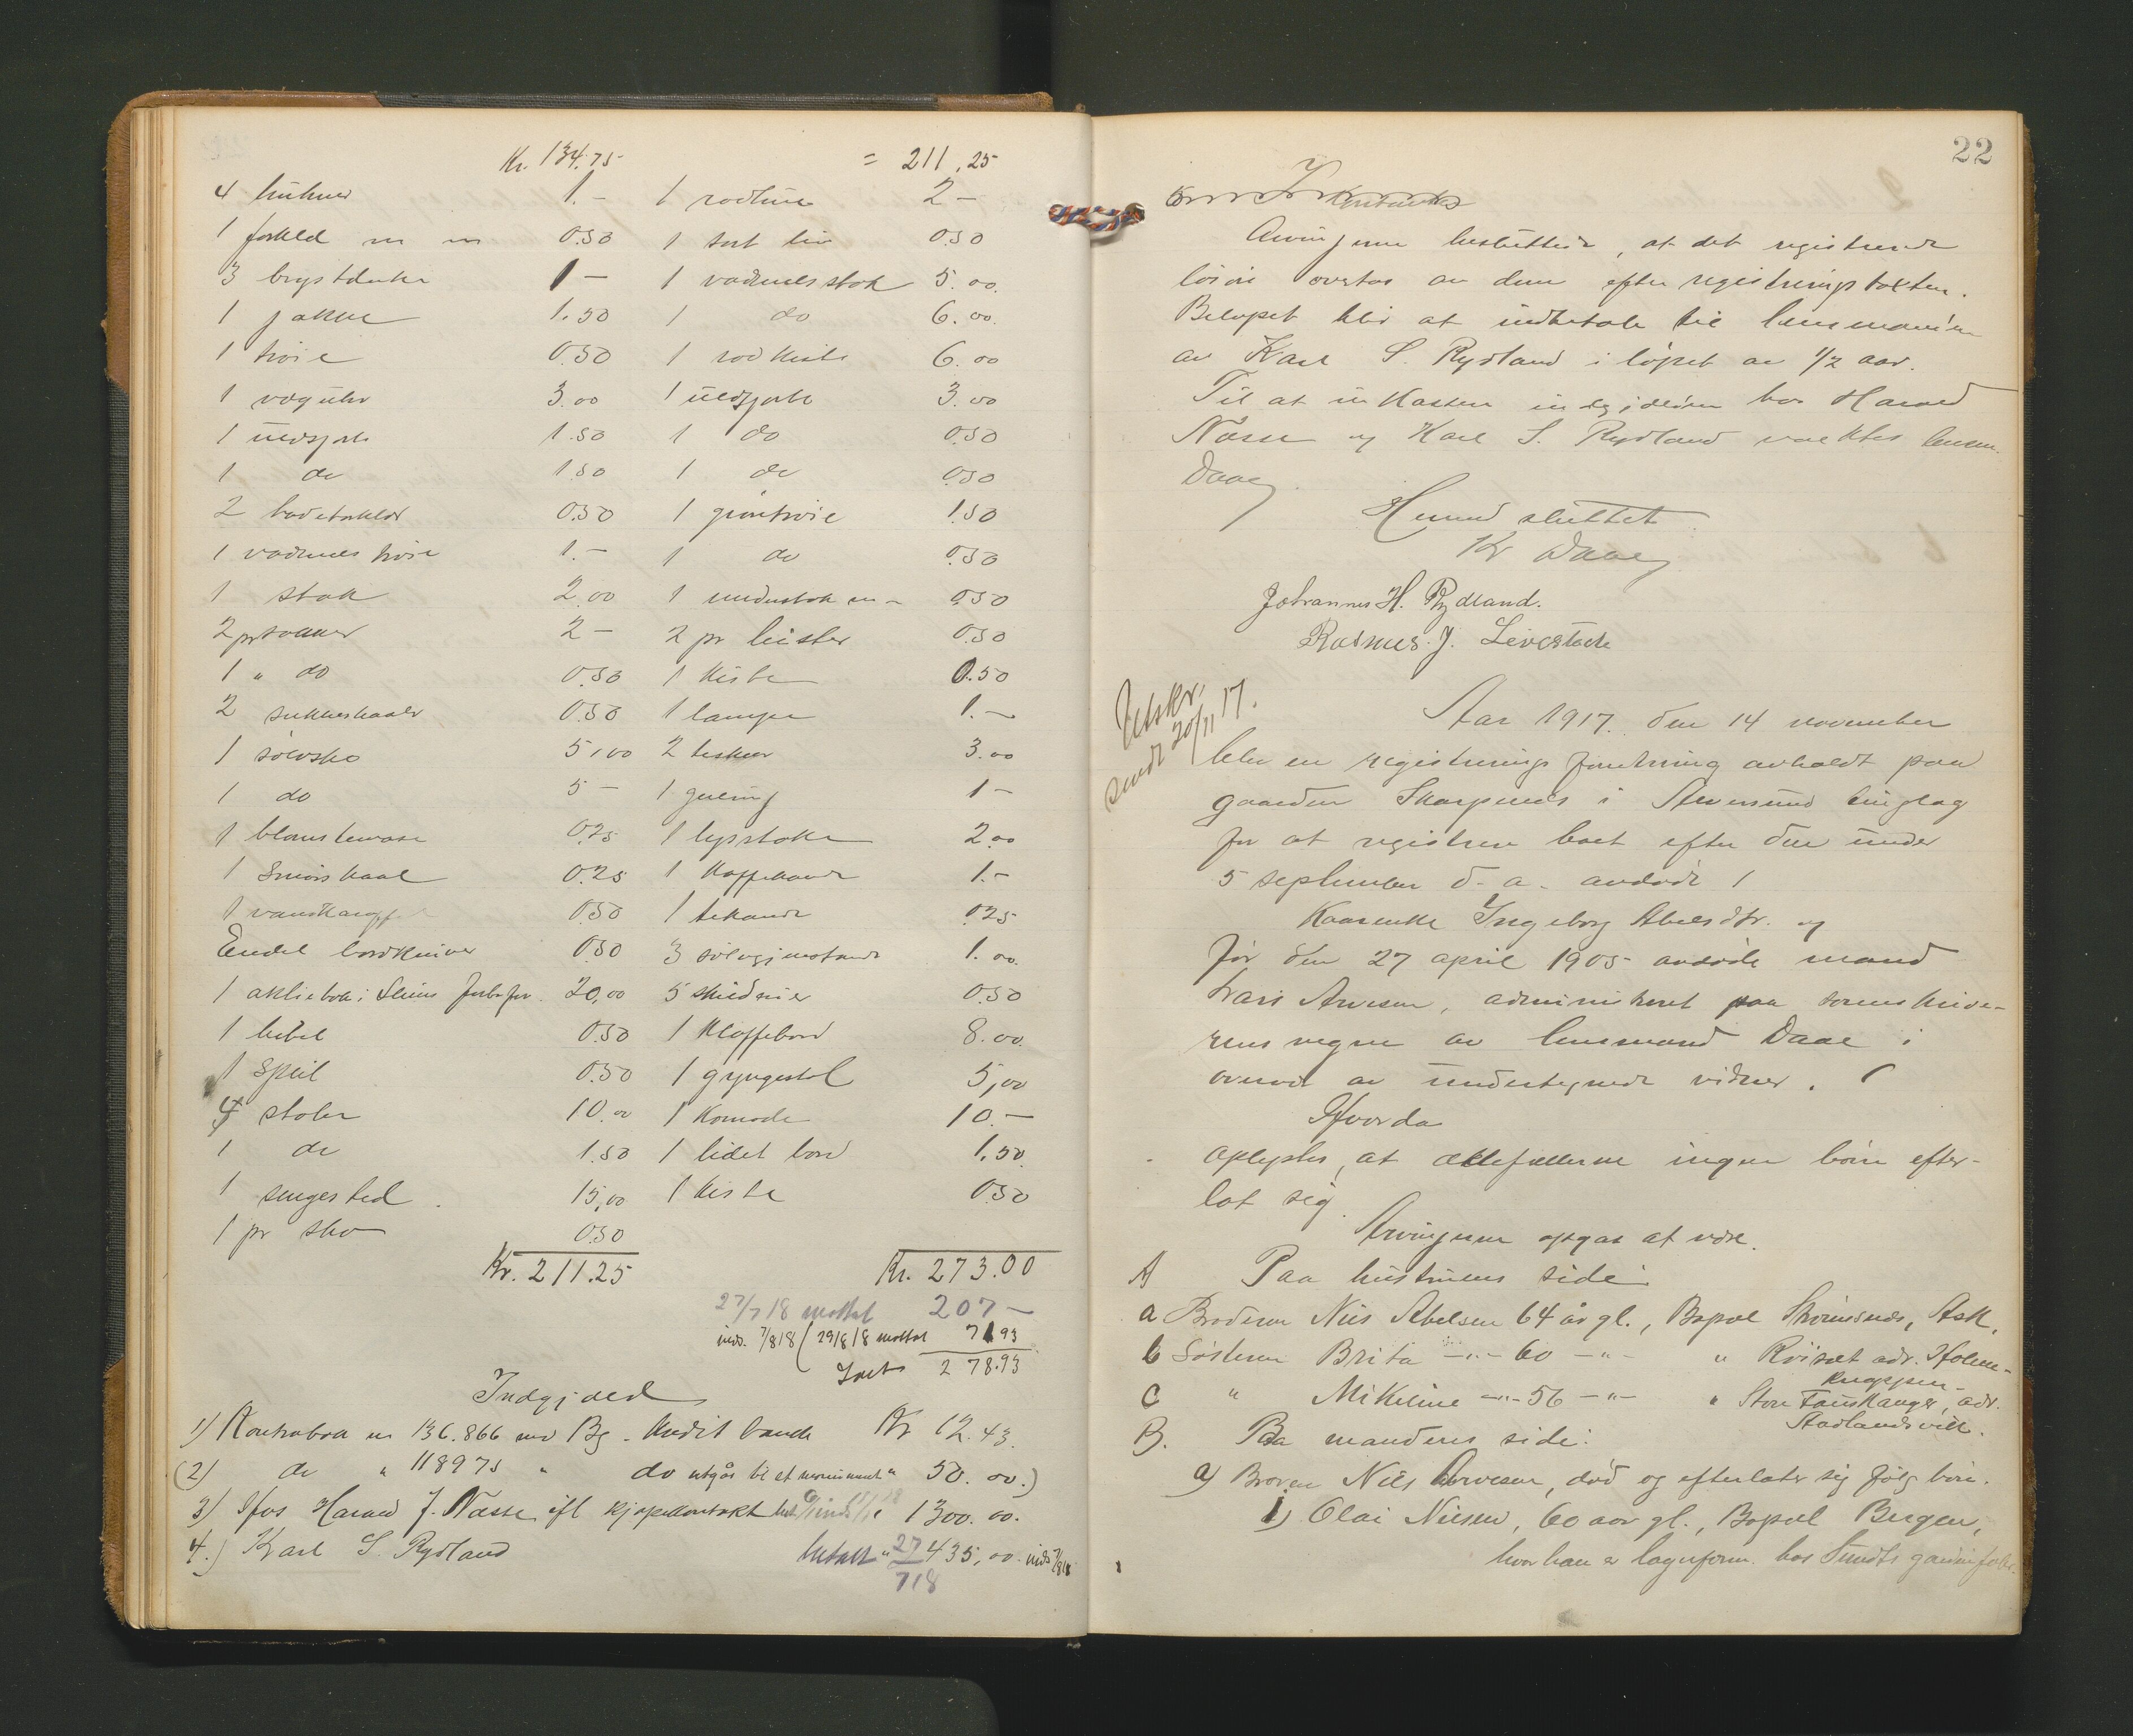 Kr. 134.75 = 211.25
4 huhner 1.- 1 rodtrøie 2 -
1 forkld m m 0.50 1 sort liv 0.50
3 brystduker 1 - 1 vadmelsstak 5.00.
1 jakke 1.50 1 do 6.00.
1 trøie 0.50 1 rod kiste 6.00
1 væguhr 3.00 1 uldsjerk 3.00
1 uldsjerk 1.50 1 do 0.50
1 do 1.50 1 do 0.50
2 0.50 1 grøntrøie 1.50
1 vadmels trøie 1.- 1 do 0.50
1 stak 2.00 1 understak m - 0.50
2 pr sokker 2 - 2 pr leister 0.50
1 " do 0.50 1 kiste 0.50
2 sukkerskaale 0.50 1 lampe 1.-
1 sølvske 5,00 2 teskeer 3.00
1 do 5 - 1 gulring 1 -
1 blomstervase 0.25 1 lysstake 2.00
1 Smørskaal 0.25 1 Kaffekande 1.-
1 0.50 1 tekande 0.25
Endel bordkniver 0.50 3 sølvgjenstande 1.00.
1 aktiebok i 20,00 5 0.50
1 bibel 0.50 1 Klaffebord 8.00.
1 Speil 0.50 1 gyngestol 5,00
4 stoler 10.00 1 Komode 10.-
1 do 1.50 1 lidet bord 1.50.
1 sengested. 15,00 1 kiste 0.50
1 pr sko 0.50
Kr. 211.25 Kr. 273.00
27/7 18 mottat 207 -
inds. 7/8 18 (29/8 18 mottat 71 93
278.93
Indgjæld
1) Kontrabok nr 136.866 ved Bg. Kredit bank Kr 12.43.
(2) do " 11897 " do utgår til et monument " 50.00.)
3) Hos Harald J. Næsse ifl kjøpekontrakt 1300.00.
4.) Karl S. Rydland betalt " 27/7 18 435,00. inds 7/8 18
22
Arvingerne besluttede, at det registrerede
løsøre overtas av dem efter registreringstaksten.
Beløpet blir at indbetale til lensmanden
av Karl S. Rydland i løpet av 1/2 aar.
Til at inkassere indgjælden hos Harald
Næsse og Karl S. Rydland valgtes lensm.
Daae.
Hermed sluttet.
Kr Daae
Johannes H. Rydland.
Rasmus J. Sævstack
Utskr.
sendt 20/11 17.
Aar 1917. den 14 november
blev en registrerings forretning avholdt paa
gaarden Skarpenes i Alversund tinglag
for at registrere boet efter den under
5 september d. a. avdøde 1
Kaarenke Ingeborg Abelsdtr. og
før den 27 april 1905 avdøde mand
Lars Arvesen, administreret paa sorenskrive-
rens vegne av lensmand Daae i
overvær av undertegnede vidner.
Hvorda
oplystes, at ektefællerne ingen børn efter-
lot sig.
Arvingerne opgas at være.
A Paa hustruens side:
a Broderen Nils Abelsen 64 år gl., Bopæl Strømsnes, Ask,
b Søsteren Brita -"- 60 -"- " Røiset adr. Holme-
knappen-
c " Mikeline -"- 56 -"- " Store Fauskanger, adr.
Stadlandsvik.
B. Paa mandens side:
a) Broren Nils Arvesen, død og efterlater sig følg børn.
1) Olai Nilsen, 60 aar gl., Bopæl Bergen,
hvor han er lagerform. hos Sundts